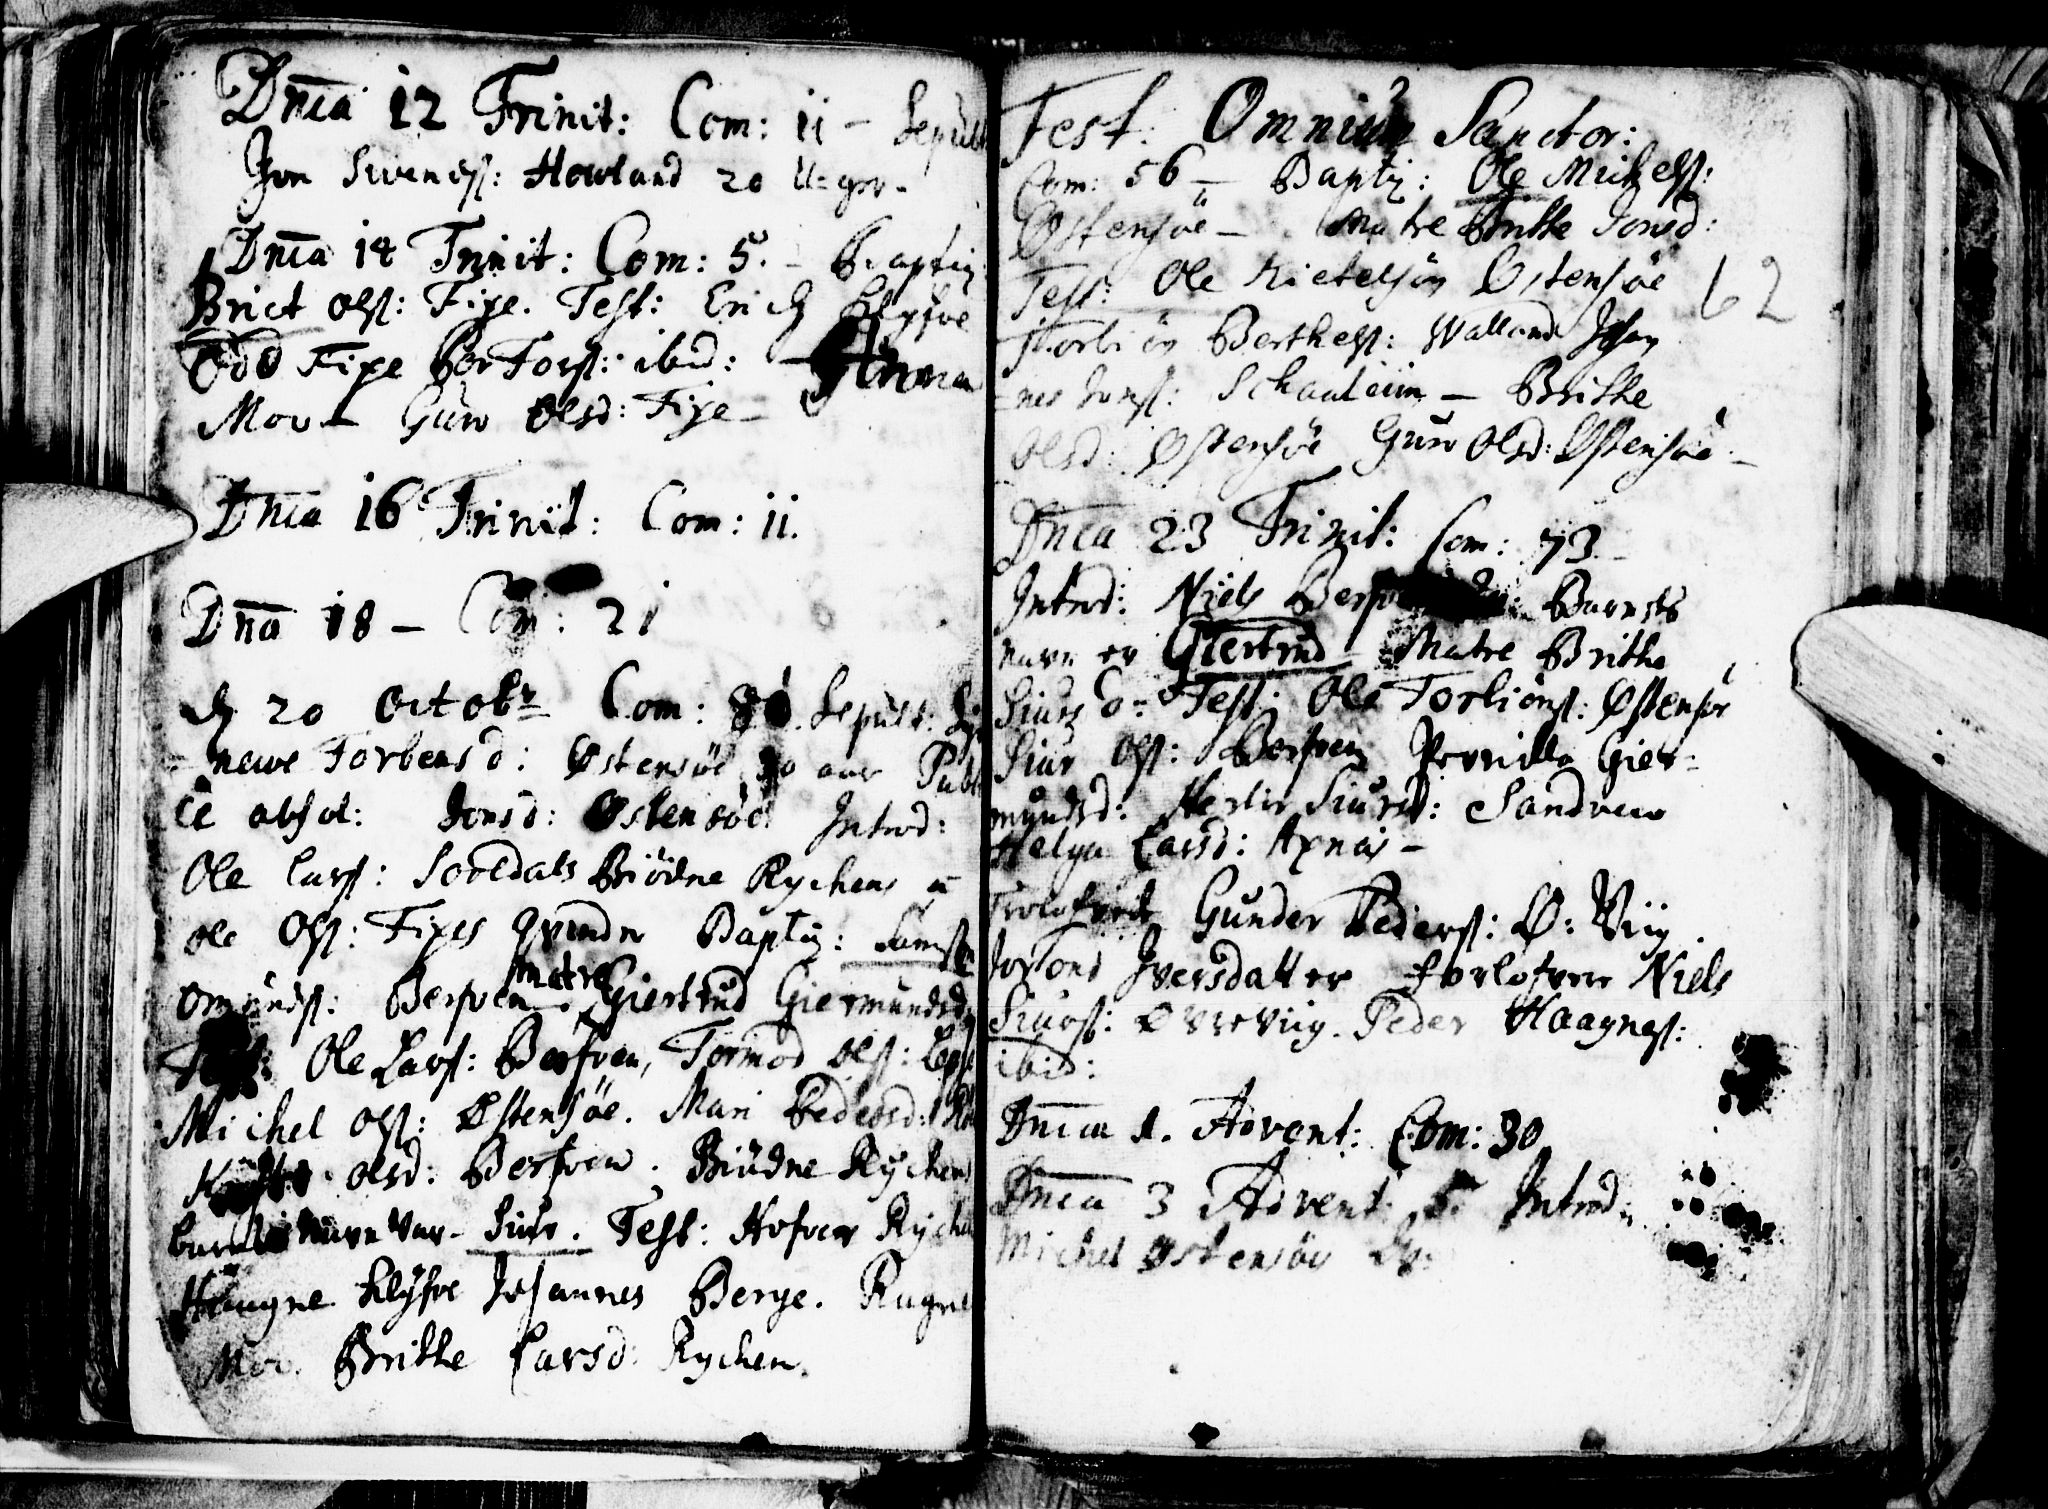 Dnīca 12 Trinit: Com: ii – Sepult
Jon Svends: Howland 20 Uger.
Dnīca 14 Trinit: Com: 5. – Baptiz:
Brict Ols: Fixe. Test: Erich Klyfve
Odd Fixe Bor Tors: ibid: Anna
Mov – Guro Olsd: Fixe –
Dnīca 16 Trinit: Com: ii.
Dnīa 18 – Com: 21
20 Octobr Com: Sepult:
Torbensd: Østensøe aar Publi
cè absol: Jonsd: Østensøe Introd:
Ole Lars: Sooldats Biödne Rychens
Ole Ols: Fixes Qvinder Baptiz:
Omunds: Berfven matre Giertrud Giermundsd
Test: Ole Lars: Berfven, Tormod Ols:
Michel Ols: Østensøe. Mari Pedersd:
Olsd: Berfven. Biödne Rychens
barns Navn var – Siur. Test: Hofver Rychen
Haugne Klyfve Johannes Berge. Ragne
Mov. Brithe Larsd: Rychen.
Fest: Omnium Sanctor:
Com: 56 – Baptiz: Ole Michels:
Østensøe – Matre Brithe Jonsd:
Test: Ole Kietelsøn Østensøe
62
Torbiøn Berthels: Walland Johan
nes Jons: Schaaleim – Brithe
Olsd: Østensøe Guro Olsd: Østensøe –
Dnīca 23 Trinit: Com: 73 –
Introd: Niels Berfven Barnets
navn er Giertrud Matre Brithe
Siurs D: Test: Ole Torbiöns: Østensøe
Siur Ols: Berfven Pernilla Gier-
mundsd: Herlir Siursd: Sandven
Helga Larsd: Axnæs –
Trolofvede Gunder Peders: Ø: Viig
Iversdatter forlofvere Niels
Siurs: Øvreviig. Peder Haagnes:
ibid:
Dnīca 1. Advent: Com: 30
Dnīca 3 Advent: 5. Introd:
Michel Østensøes